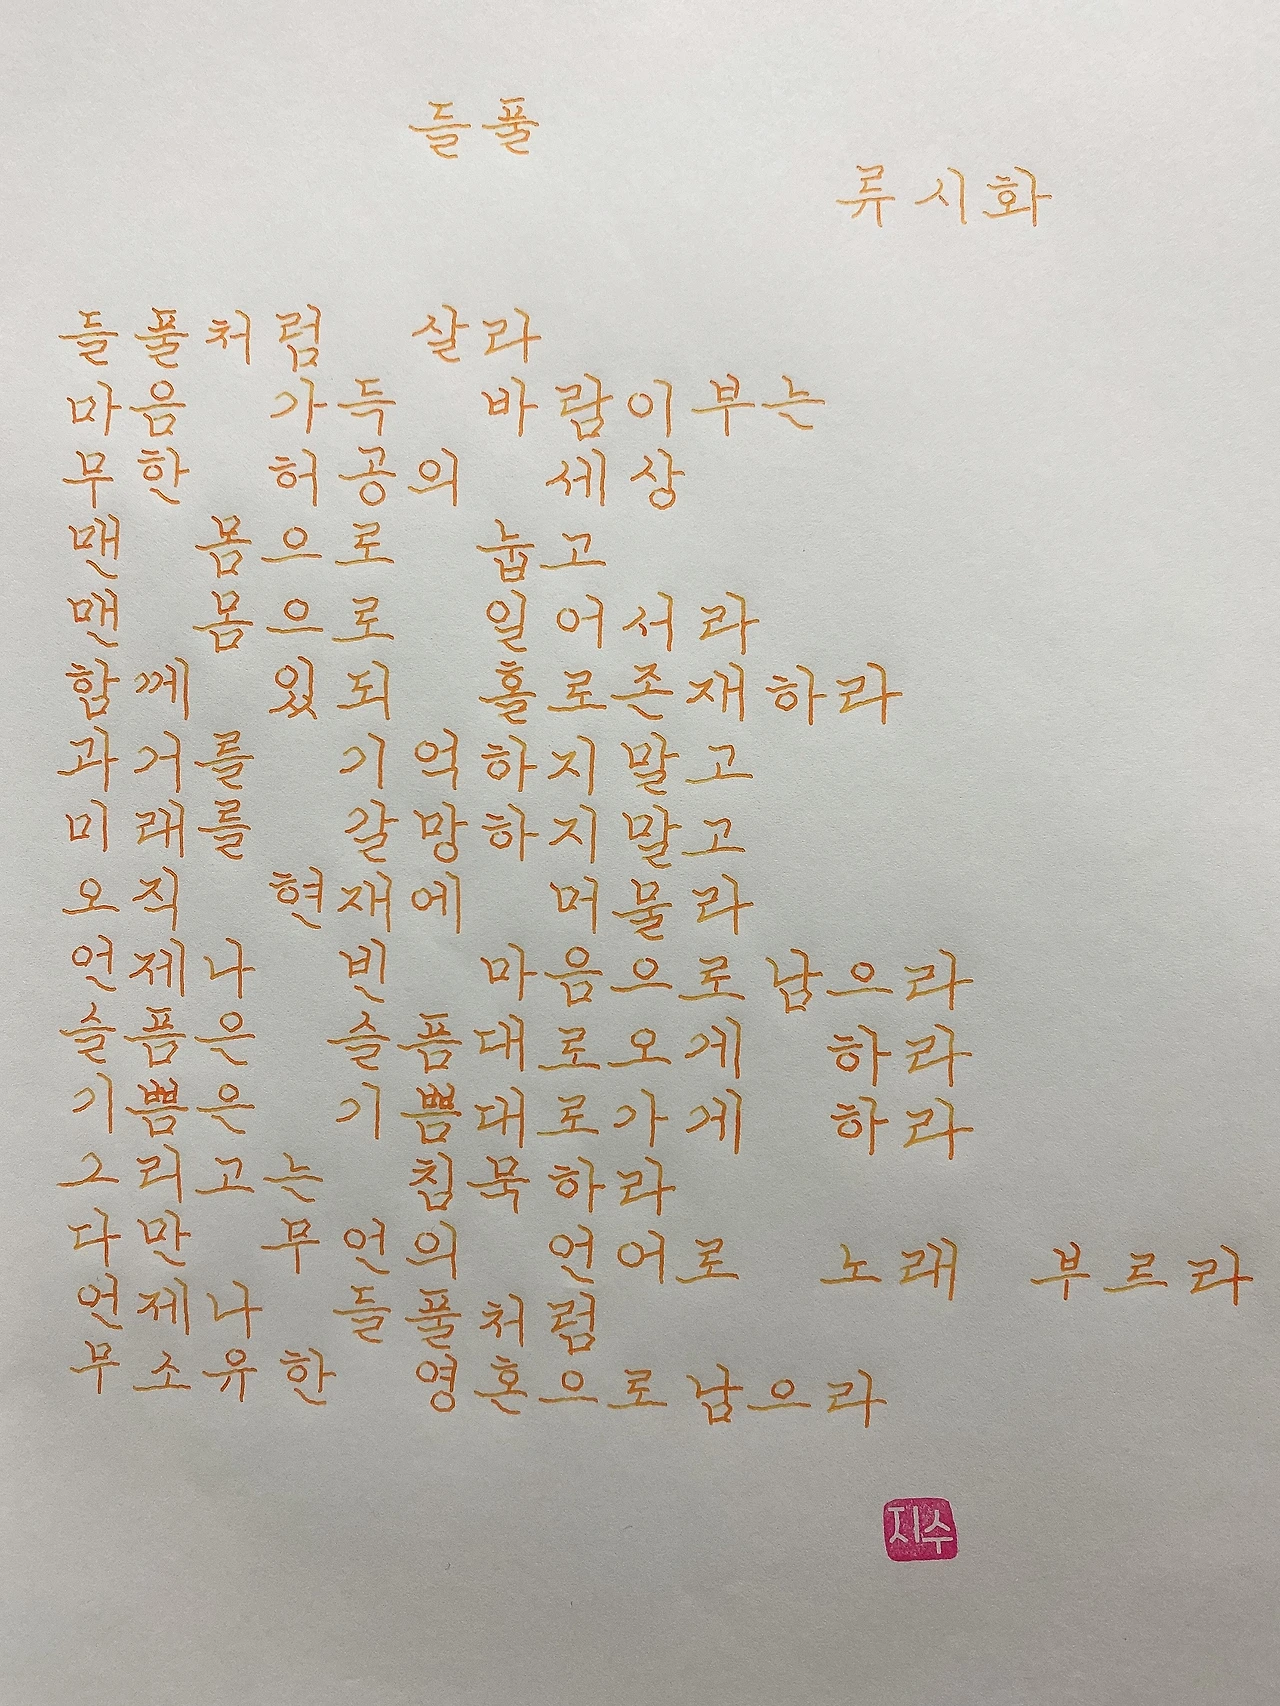 들풀
류시화
들풀처럼 살라
마음 가득 바람이부는
무한 허공의 세상
맨 몸으로 눕고
맨 몸으로 일어서라
함께 있되 홀로존재하라
과거를 기억하지말고
미래를 갈망하지말고
오직 현재에 머물라
언제나 빈 마음으로남으라
슬픔은 슬픔대로오게 하라
기쁨은 기쁨대로가게 하라
그리고는 침묵하라
다만 무언의 언어로 노래 부르라
언제나 들풀처럼
무소유한 영혼으로남으라
지수